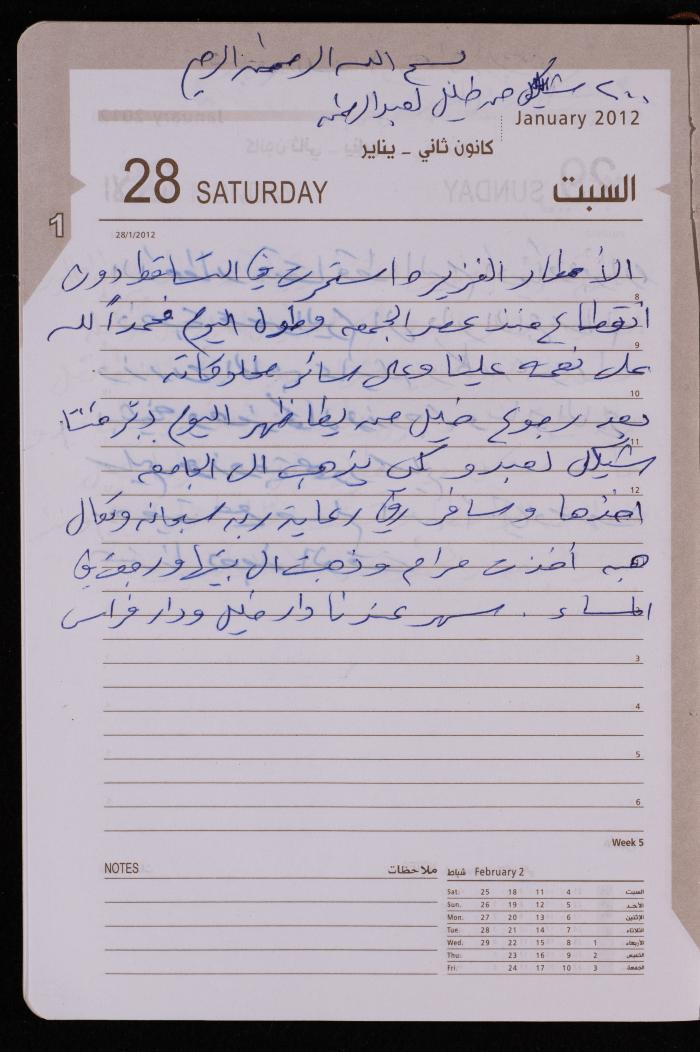 بسم الله الرحمن الرحيم
٢٠٠٠ شيكل من خليل لعبد الرحمن
January 2012
كانون ثاني - يناير
28 SATURDAY السبت
1
28/1/2012
الأمطار الغزيرة استمرت في التساقط دون
8
انقطاع منذ عصر الجمعه وطول اليوم فحمداً لله
9
على نعمه علينا وعلى سائر مخلوقاته
10
بعد رجوع خليل من يطا ظهر اليوم
11
شيكل لعبد و لكي يذهب الى الجامعه
12
اخذها وسافر في رعاية ربه سبحانه وتعالى
هبه أخذت مرام وذهبت الى بيتها ورجعت في
المساء . سهر عندنا دار خليل ودار فراس
3
4
5
6
Week 5
NOTES ملاحظات
February 2 شباط
Sat. 25 18 11 4 السبت
Sun. 26 19 12 5 الأحد
Mon. 27 20 13 6 الإثنين
Tue. 28 21 14 7 الثلاثاء
Wed. 29 22 15 8 1 الأربعاء
Thu. 23 16 9 2 الخميس
Fri. 24 17 10 3 الجمعة